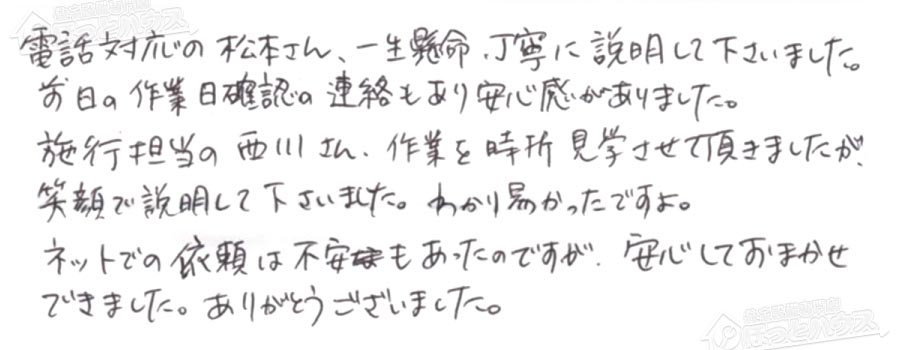 電話対応の松本さん、一生懸命、丁寧に説明して下さいました。
前日の作業日確認の連絡もあり安心感がありました。
施行担当の西川さん、作業を時折見学させて頂きましたが、
笑顔で説明して下さいました。わかり易かったですよ。
ネットでの依頼は不安もあったのですが、安心しておまかせ
できました。ありがとうございました。
ほっとハウス
ほっとハウス